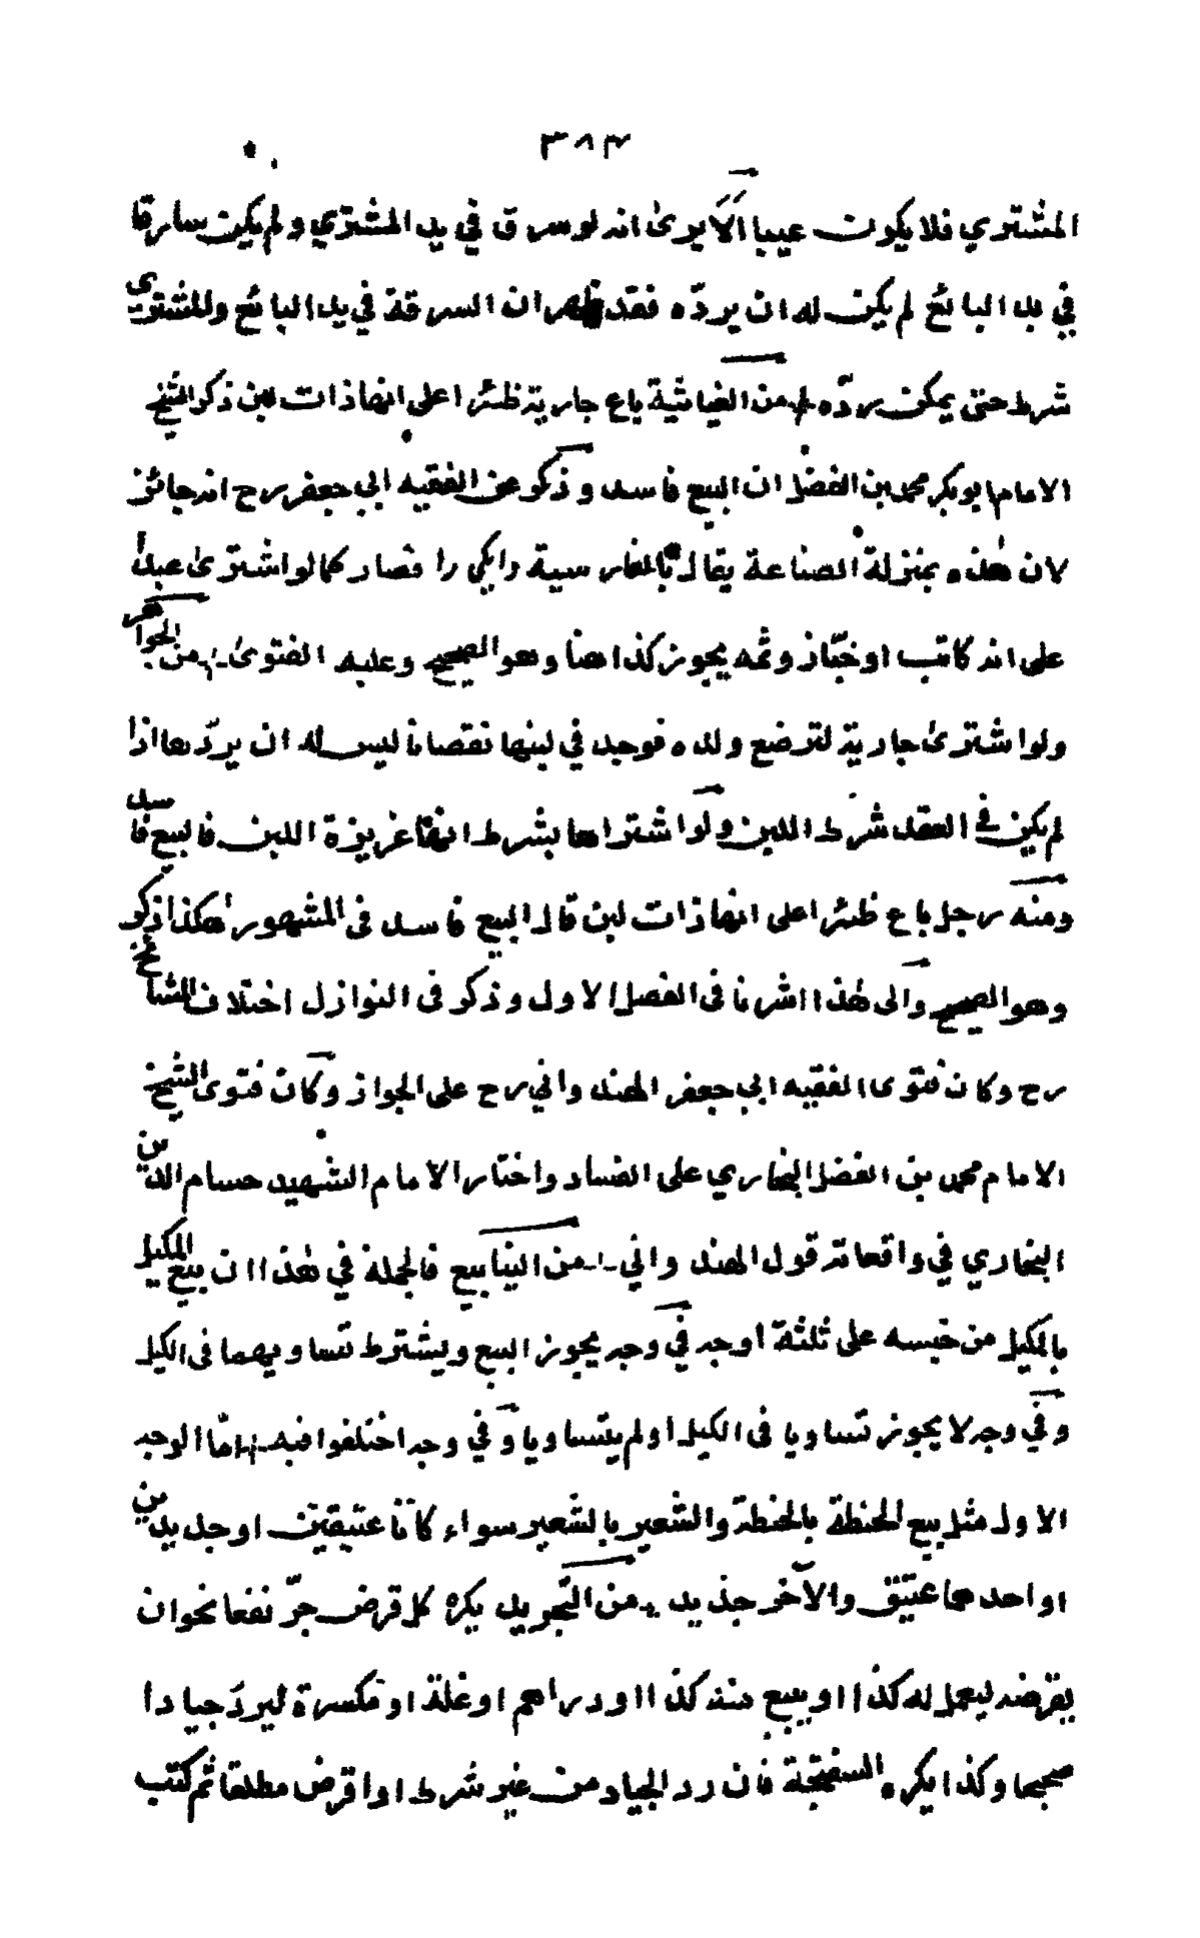 ٣٨٣
المشتري فلا يكون عيبا الا يرى انه لو سرق في يد المشتري ولم يكن سارقا
في يد البائع لم يكن له ان يرده فقد ظهر ان السرقة في يد البائع وللمشتري
شرط حتى يمكن رده من الغياثية باع جارية ظئرا على انها ذات لبن ذكر الشيخ
الامام ابو بكر محمد بن الفضل ان البيع فاسد وذكر عن الفقيه ابي جعفر رح انه جائز
لان هذه بمنزلة الصناعة يقال بالفارسية دايكي را فصار كما لو اشترى عبدا
على انه كاتب او خبّاز وثمه يجوز كذا هنا وهو الصحيح وعليه الفتوى من الجواهر
ولو اشترى جارية لترضع ولده فوجد في لبنها نقصانا ليس له ان يردّها اذا
لم يكن في العقد شرط اللبن ولو اشتراها بشرط انها غزيرة اللبن فالبيع فاسد
ومنه رجل باع ظئرا على انها ذات لبن قال البيع فاسد في المشهور هكذا ذكر
وهو الصحيح والى هذا اشرنا في الفصل الاول وذكر في النوازل اختلاف المشائخ
رح وكان فتوى الفقيه ابي جعفر الهندواني رح على الجواز وكان فتوى الشيخ
الامام محمد بن الفضل البخاري على الفساد واختار الامام الشهيد حسام الدين
البخاري في واقعاته قول الهندواني من الينابيع فالجملة في هذا ان بيع المكيل
بالمكيل من جنسه على ثلثة اوجه في وجه يجوز البيع ويشترط تساويهما في الكيل
وفي وجه لا يجوز تساويا في الكيل او لم يتساويا وفي وجه اختلفوا فيه امّا الوجه
الاول مثل بيع الحنطة بالحنطة والشعير بالشعير سواء كانا عتيقين او جديدين
او احدهما عتيق والآخر جديد من التجريد يكره كل قرض جرّ نفعا نحو ان
يقرضه ليعمل له كذا او يبيع منه كذا او دراهم او غلة او مكسرة ليرد جيادا
صحيحا وكذا يكره السفتجة فان رد الجياد من غير شرط او اقرض مطلقا ثم كتب